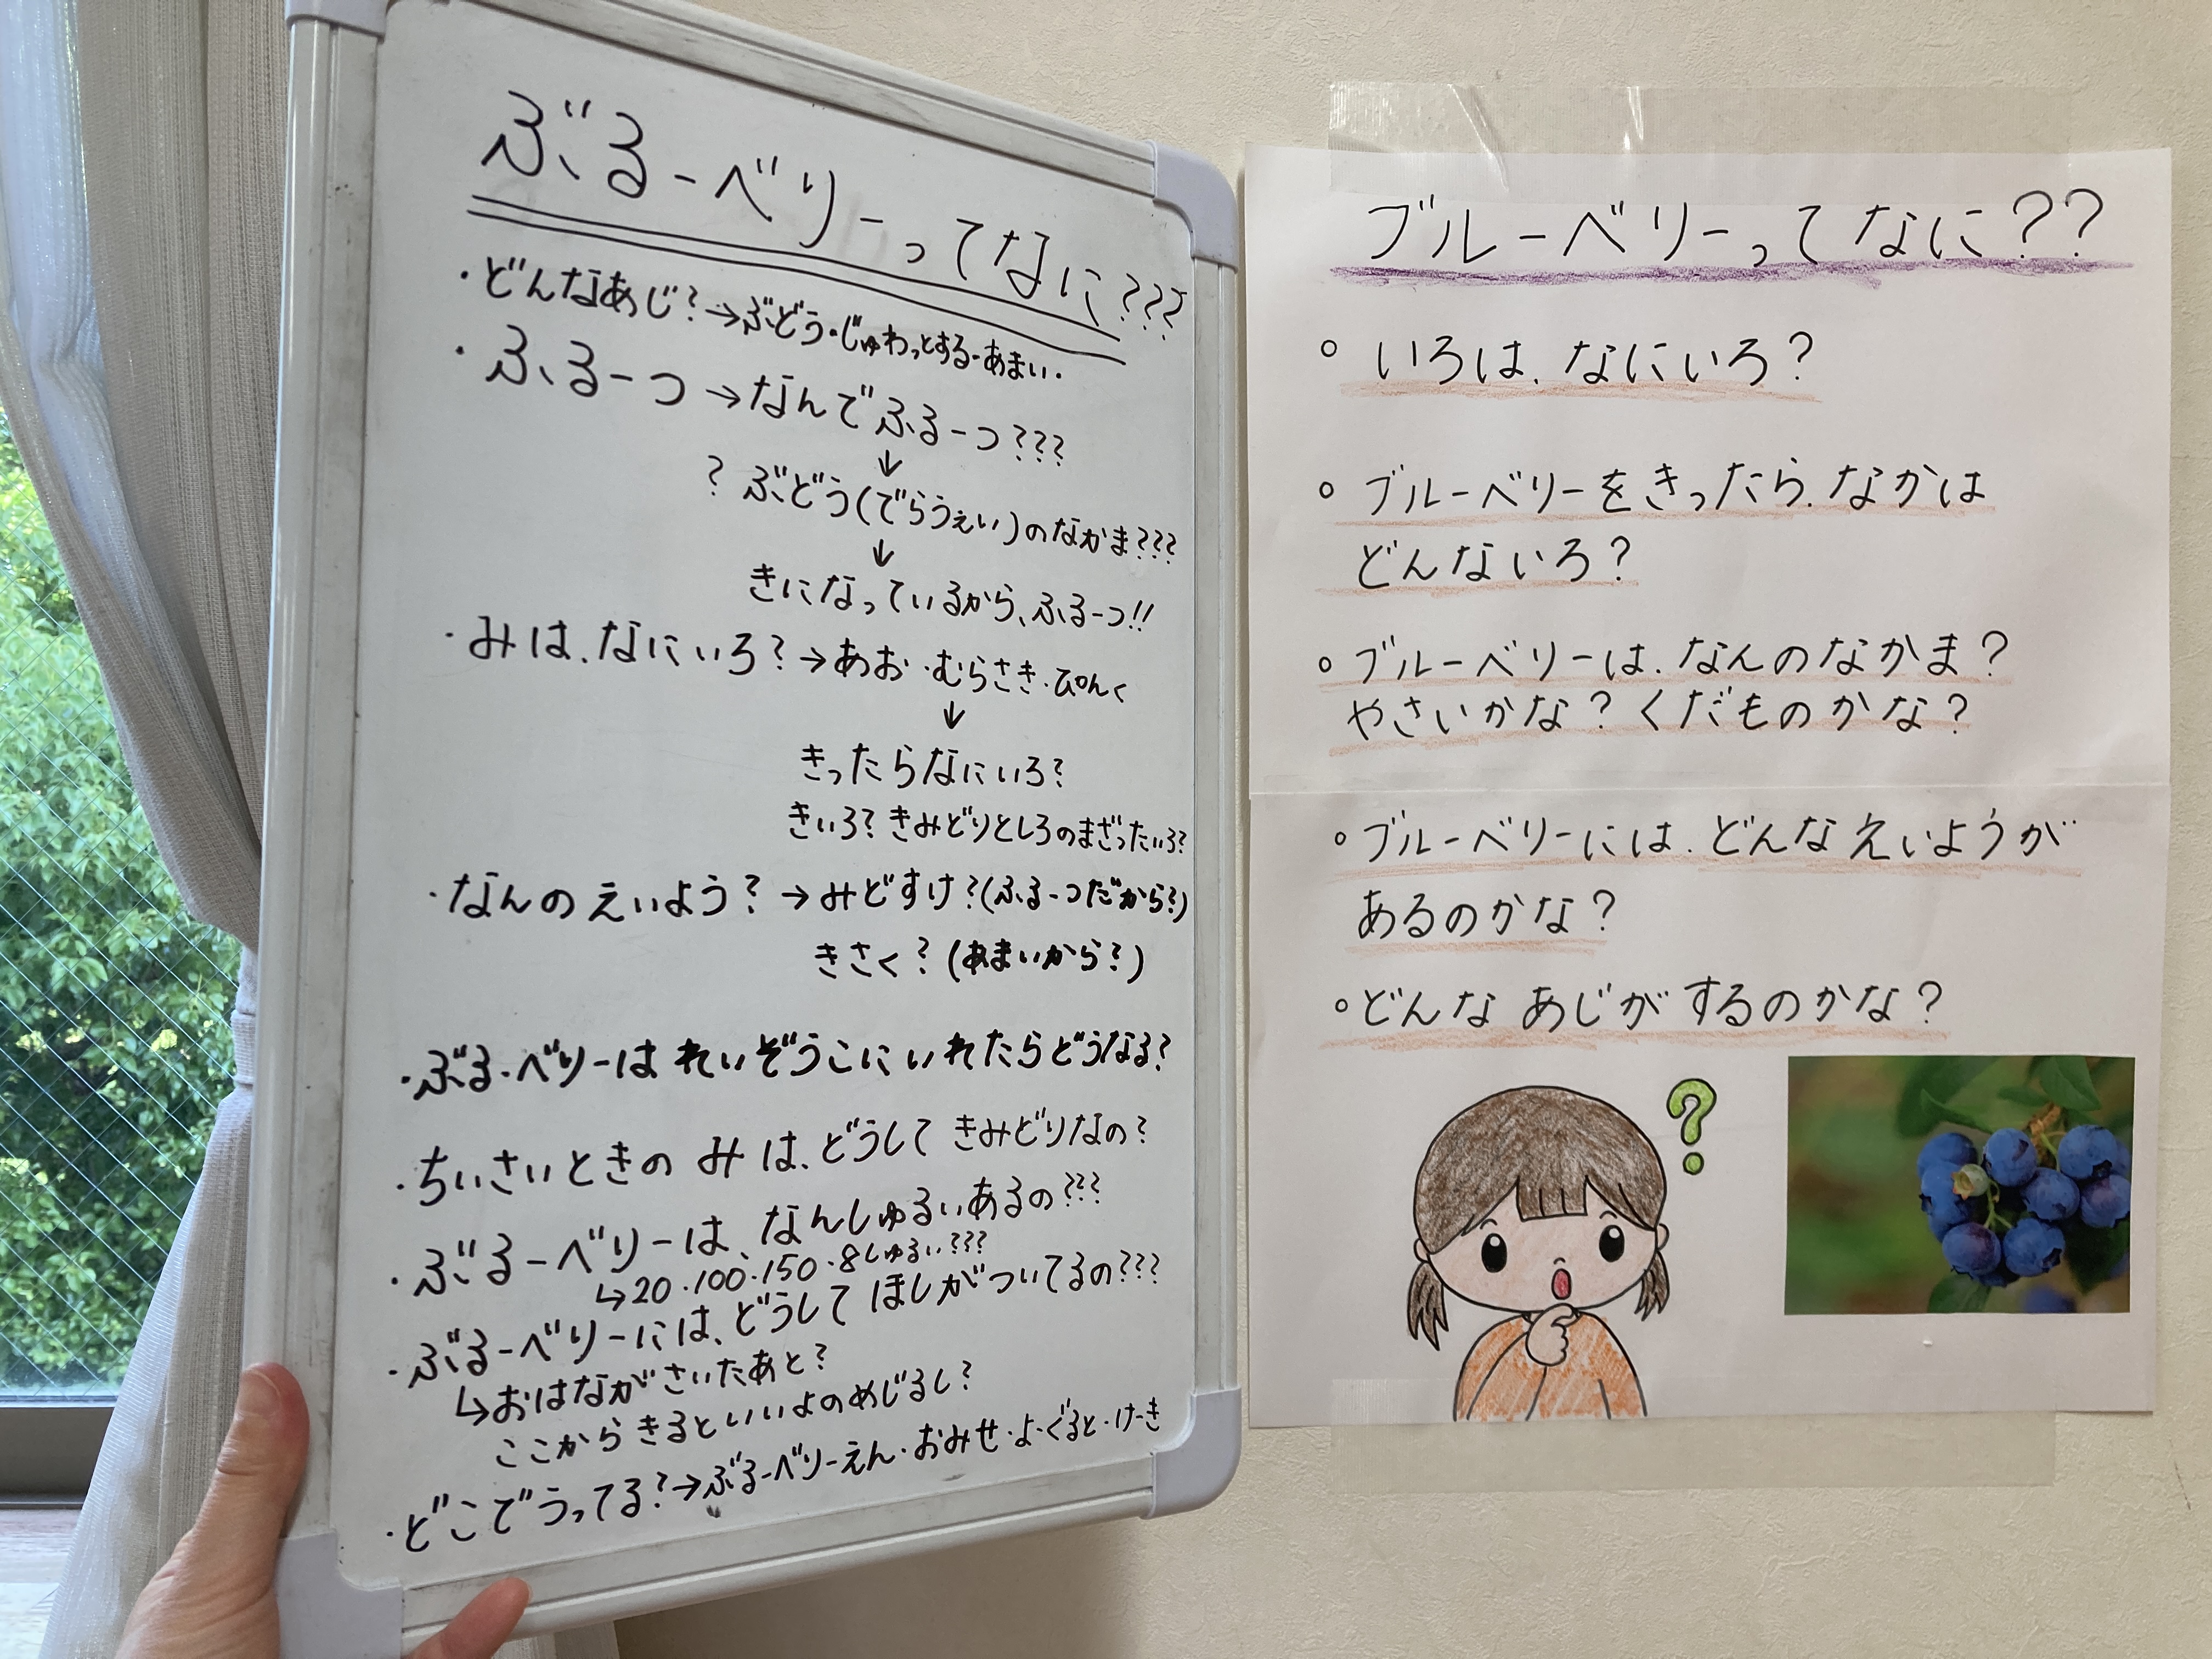 ぶるーべりーってなに???
・どんなあじ?→ぶどう・じゅわっとする・あまい・
・ふるーつ→なんでふるーつ???
↓
?ぶどう(でらうぇい)のなかま???
↓
きになっているから、ふるーつ!!
・みは、なにいろ?→あお・むらさき・ぴんく
↓
きったらなにいろ?
きいろ?きみどりとしろのまざったいろ?
・なんのえいよう?→みどすけ?(ふるーつだから?)
きさく?(あまいから?)
・ぶるーべりーはれいぞうこにいれたらどうなる?
・ちいさいときのみは、どうしてきみどりなの?
・ぶるーべりーは、なんしゅるいあるの???
↳20・100・150・8しゅるい???
・ぶるーべりーには、どうしてほしがついてるの???
↳おはながさいたあと?
ここからきるといいよのめじるし?
・どこでうってる?→ぶるーべりーえん・おみせ・よーぐると・けーき
ブルーベリーってなに??
○いろは、なにいろ?
○ブルーベリーをきったら、なかは
どんないろ?
○ブルーベリーは、なんのなかま?
やさいかな?くだものかな?
○ブルーベリーには、どんなえいようが
あるのかな?
○どんなあじがするのかな?
?